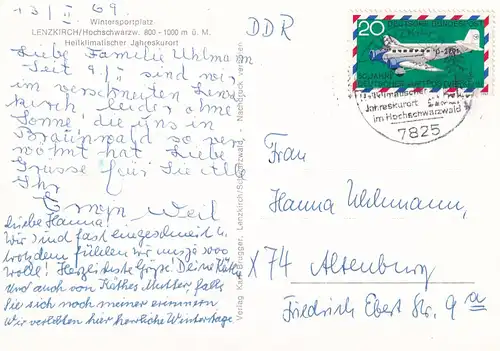 13/II. 69.
Wintersportplatz
LENZKIRCH/Hochschwarzw. 800 - 1000 m ü. M.
Heilklimatischer Jahreskurort
Liebe Familie Uhlmann
Seit 9./II sind wir
im verschneiten Lenz
kirch, leider ohne
Sonne, die uns in
Braunwald so ver
wöhnt hat. Liebe
Grüsse für Sie Alle
Ihr
Erwin Weil
Liebe Hanna!
Wir sind fast eingeschneit u.
trotzdem fühlen wir uns so
wohl! Herzlichste Grüße! Deine Käthe
Und auch von Käthes Mutter, falls
Sie sich noch meiner erinnern
Wir verlebten hier herrliche Wintertage
Verlag Karl Brugger, Lenzkirch/Schwarzwald, - Nachdruck verboten
DDR
20
DEUTSCHE BUNDESPOST
50 JAHRE
DEUTSCHER LUFTPOSTDIENST
Heilklimatischer
Jahreskurort
im Hochschwarzwald
7825
Frau
Hanna Uhlmann,
X 74 Altenburg
Friedrich Ebert Str. 9 a